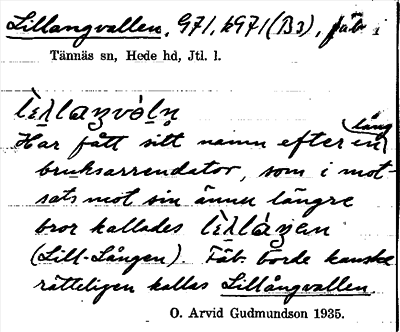 Lillangvallen, 971, k971 (B3), fäb.
Tännäs sn, Hede hd, Jtl. l.
Har fått sitt namn efter en lång
bruksarrendator, som i mot-
sats mot sin ännu längre
bror kallades
(Lill-Lången). Fäb. borde kanske
rätteligen kallas Lillångvallen.
O. Arvid Gudmundson 1935.